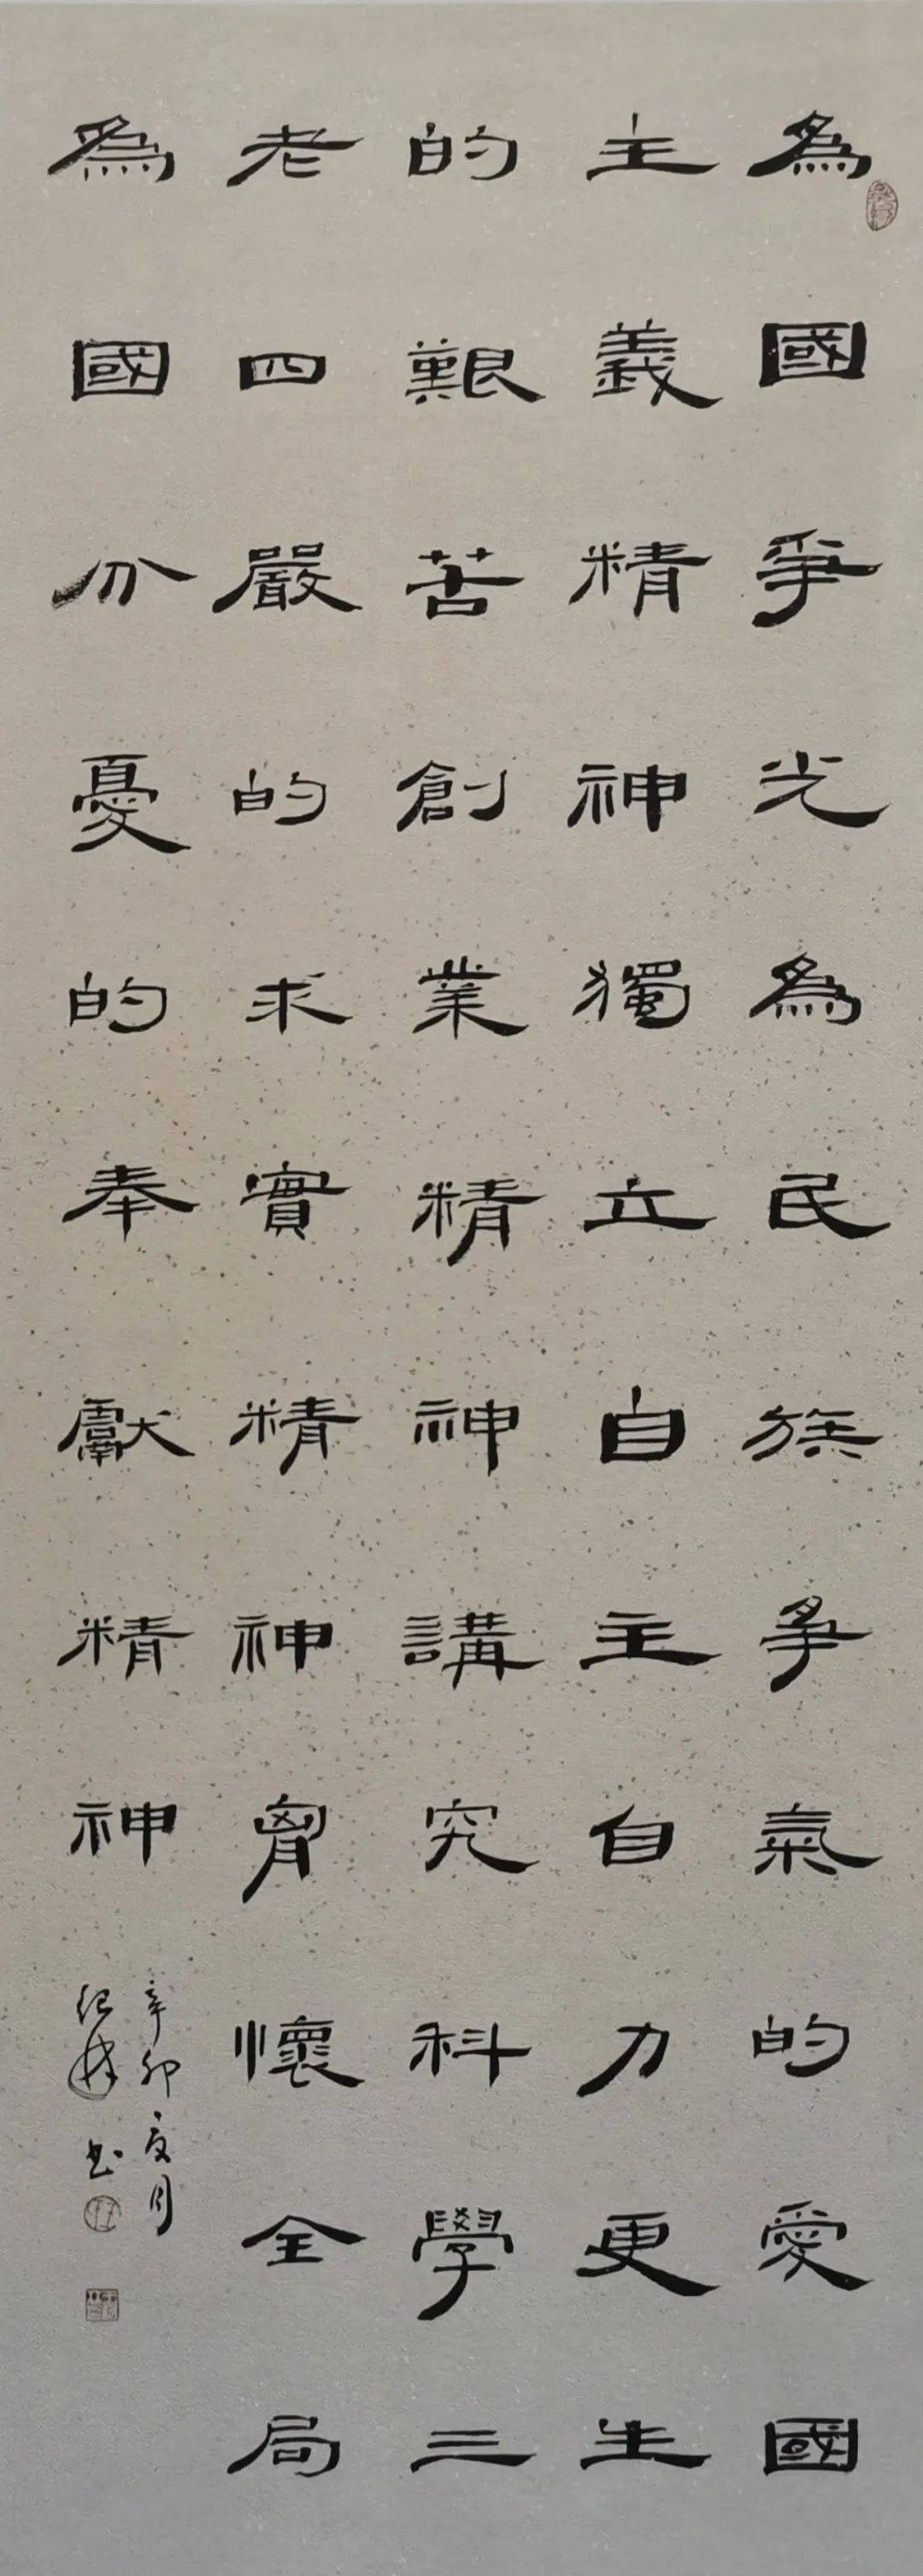 為國爭光為民族爭氣的愛國
主義精神獨立自主自力更生
的艱苦創業精神講究科學三
老四嚴的求實精神胷懷全局
為國分憂的奉獻精神
辛卯夏月
书